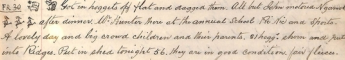 FR 30 Got in hoggets off flat and dagged them. All but John motored Ngawa
after dinner. Mr Hunter there at the annual School and sports.
A lovely day and big crowd children and their parents, shorn and put
into Ridges. Put in shed tonight 56. They are in good condition, fair fleece.